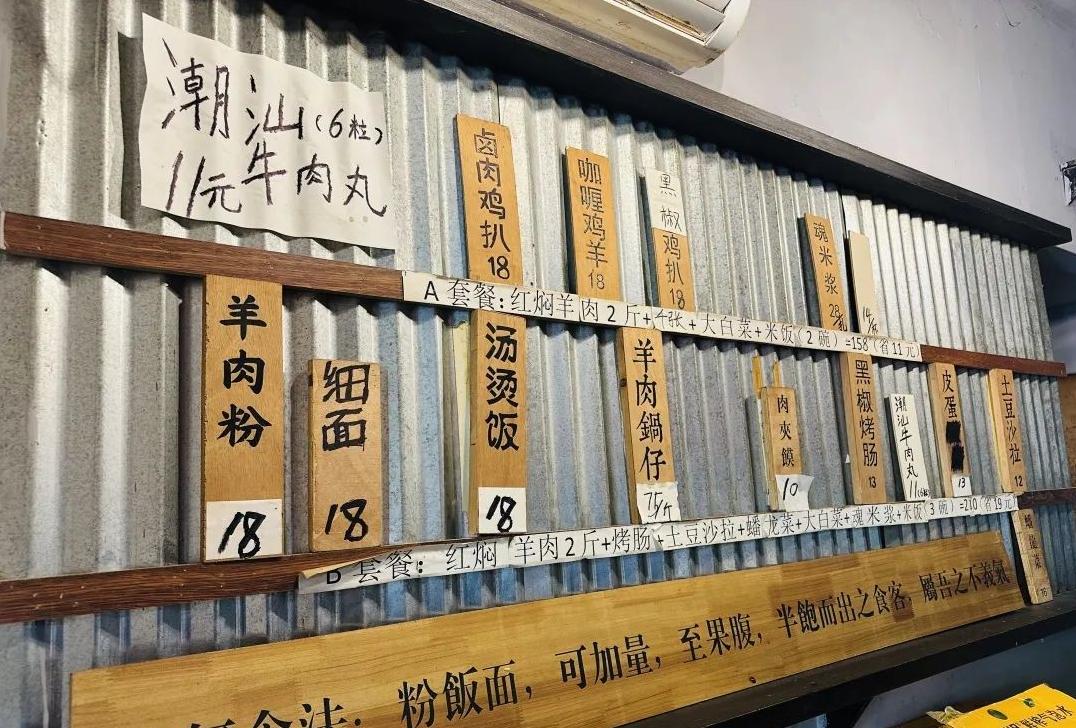 潮汕(6粒)
11元牛肉丸
卤肉鸡扒 18
咖喱鸡羊 18
黑椒鸡扒 18
魂米浆 28
A 套餐:红焖羊肉2斤+千张+大白菜+米饭(2碗)=158(省11元)
羊肉粉 18
细面 18
汤烫饭 18
羊肉鍋仔 75/斤
肉夾饃 10
黑椒烤肠 13
潮汕牛肉丸 11(6粒)
皮蛋 13
土豆沙拉 12
B 套餐:红焖羊肉2斤+烤肠+土豆沙拉+蟠龙菜+大白菜+魂米浆+米饭(3碗)=210(省19元)
蟠龍菜
法:粉飯面,可加量,至果腹,半飽而出之食客,屬吾之不義氣